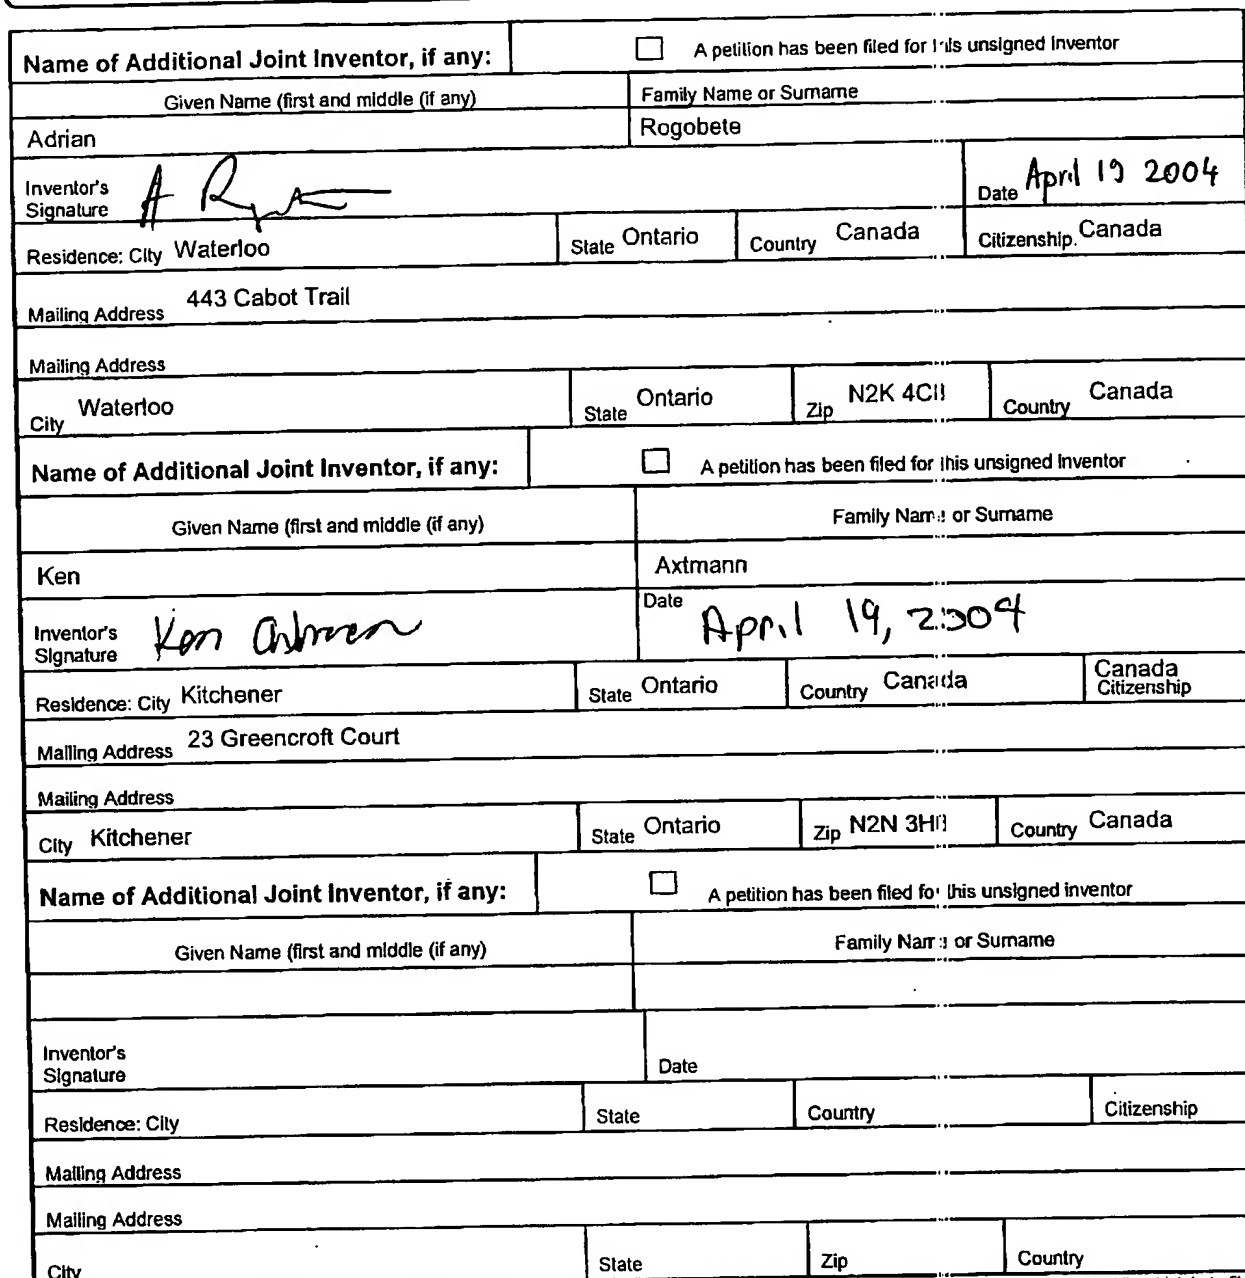 Name of Additional Joint Inventor, if any: A petition has been filed for this unsigned Inventor
Given Name (first and middle (if any) Family Name or Surname
Adrian Rogobete
Inventor's Signature A Date April 19 2004
Residence: City Waterloo State Ontario Country Canada Citizenship. Canada
Mailing Address 443 Cabot Trail
Mailing Address
City Waterloo State Ontario Zip N2K Country Canada
Name of Additional Joint Inventor, if any: A petition has been filed for this unsigned Inventor
Given Name (first and middle (if any) Family Name or Surname
Ken Axtmann
Inventor's Signature Ken Axtmann Date April 19, 2004
Residence: City Kitchener State Ontario Country Canada Canada Citizenship
Mailing Address 23 Greencroft Court
Mailing Address
City Kitchener State Ontario Zip N2N Country Canada
Name of Additional Joint Inventor, if any: A petition has been filed for this unsigned inventor
Given Name (first and middle (if any) Family Name or Surname
Inventor's Signature Date
Residence: City State Country Citizenship
Mailing Address
Mailing Address
City State Zip Country